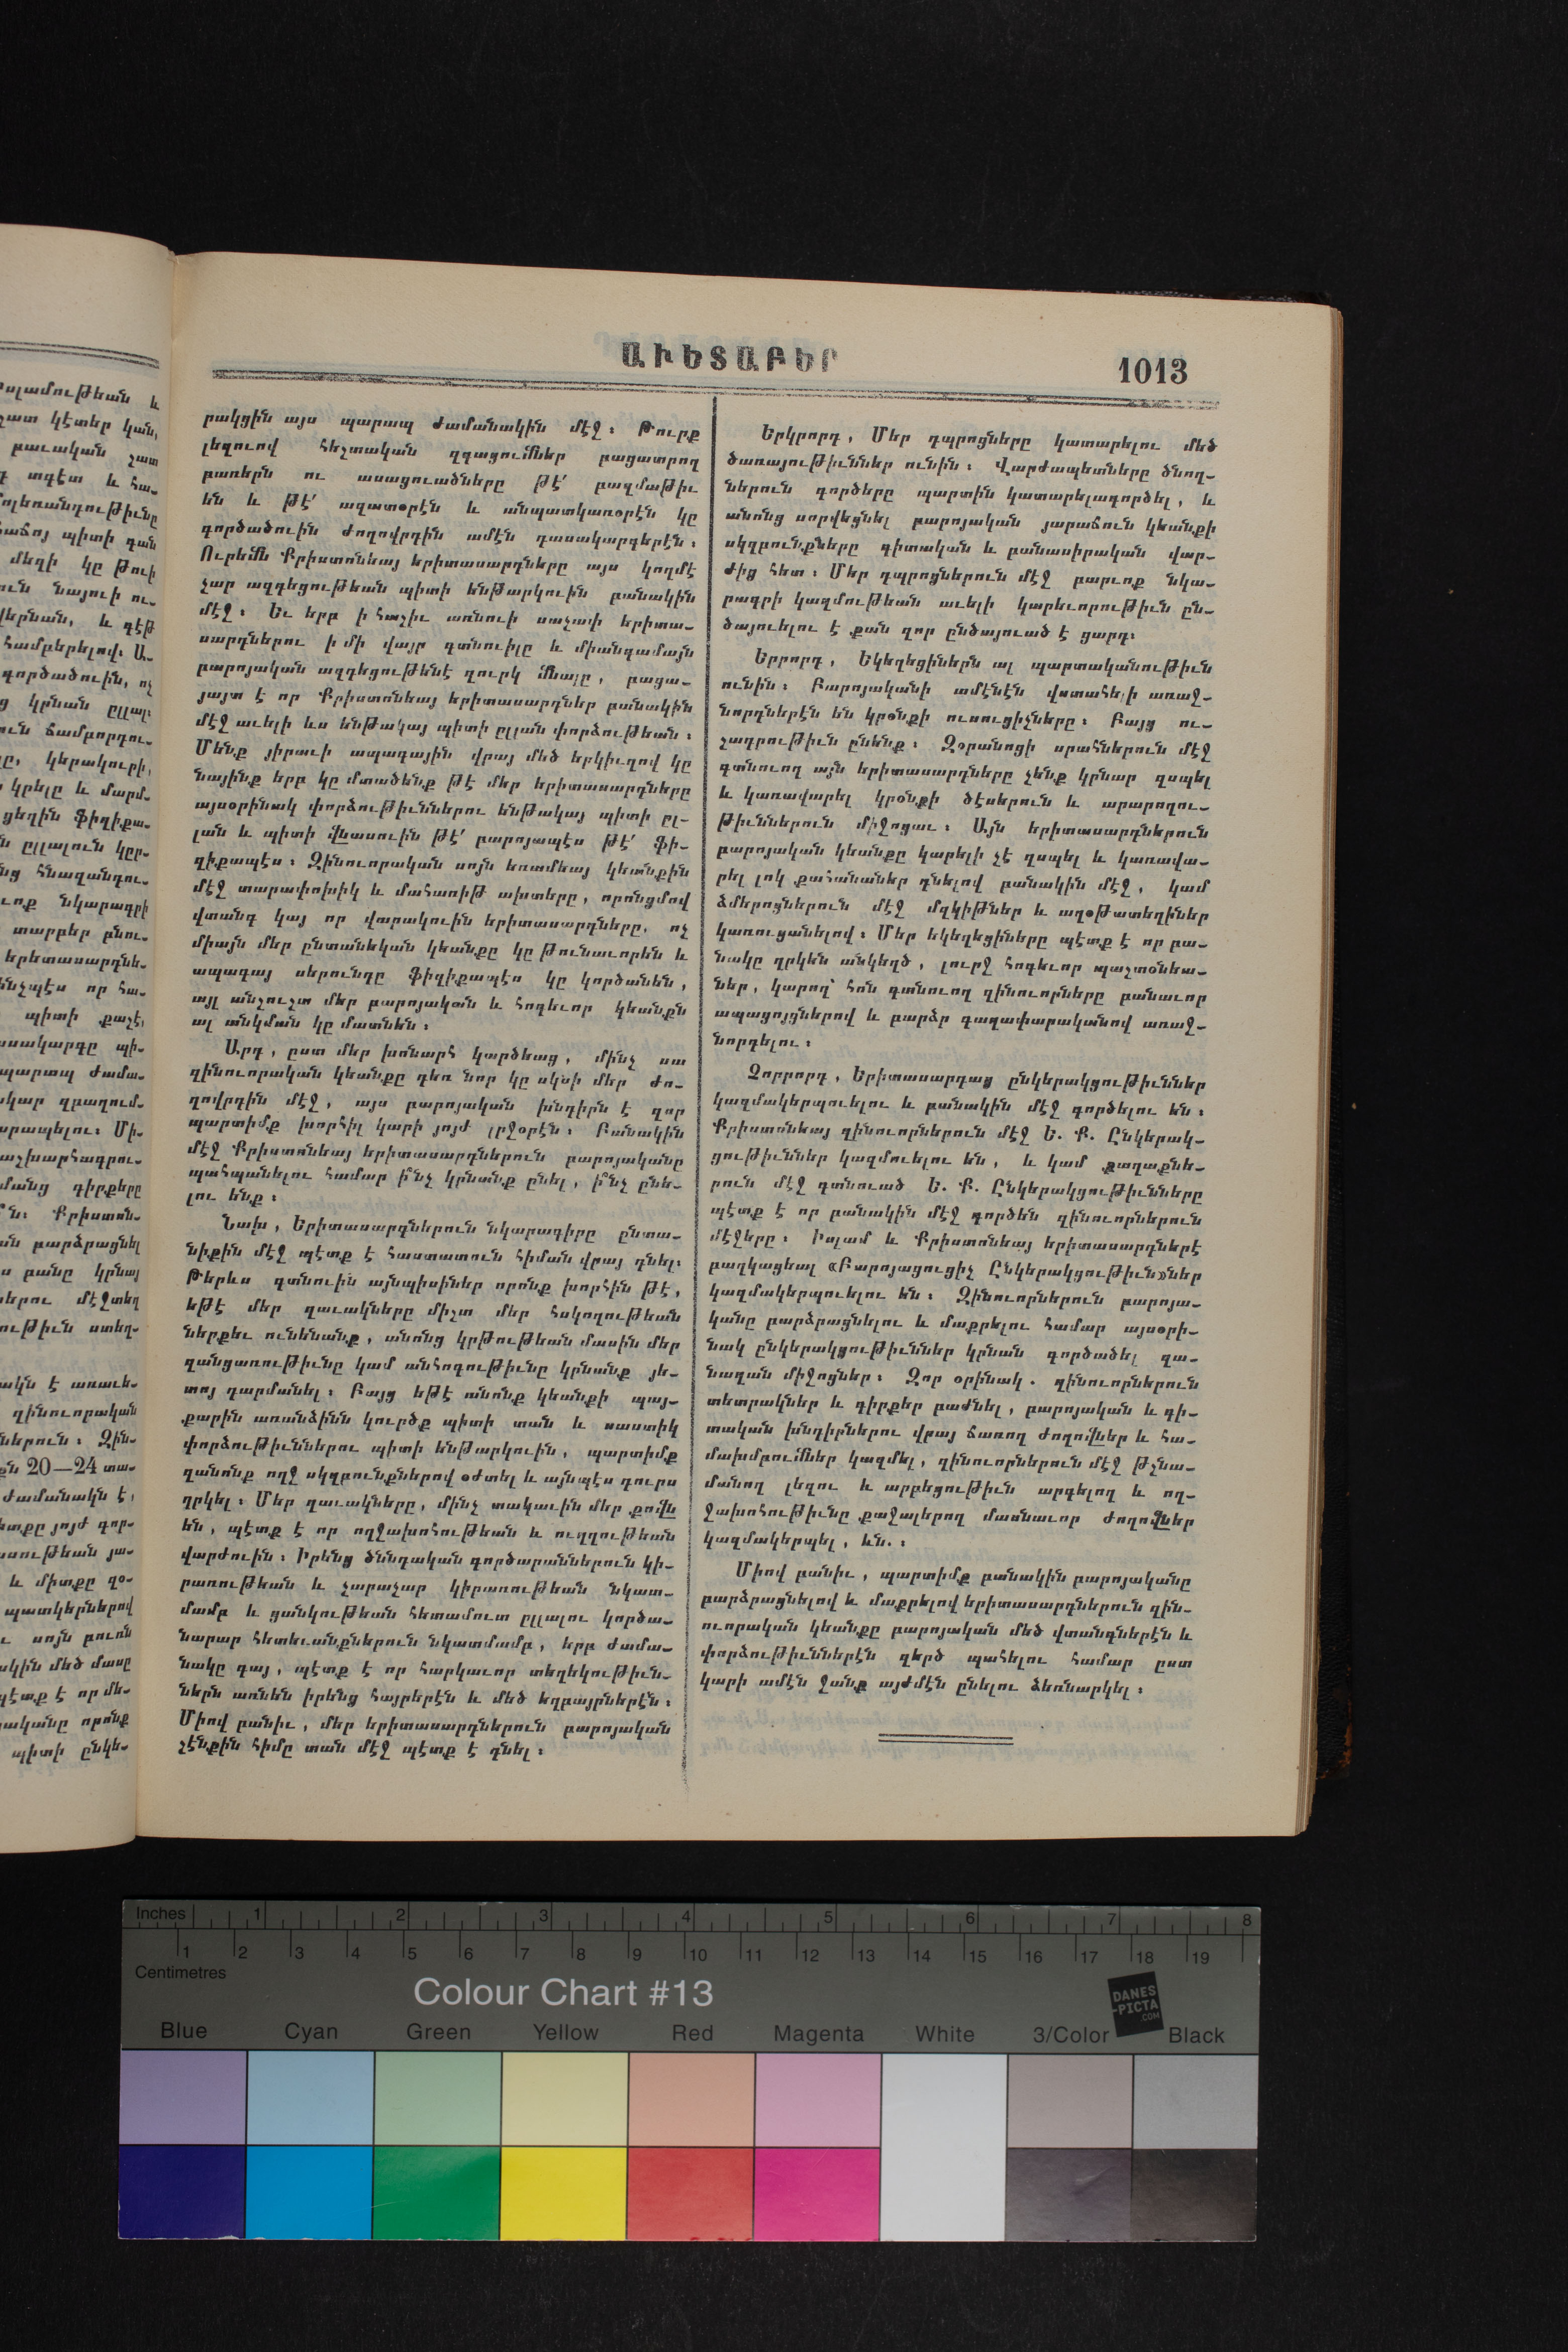 ԱՒԵՏԱԲԵՐ
1013
րակցին այս պարապ ժամանակին մէջ։ Թուրք
լեզուով հեշտական զգացումներ բացատրող
բառերն ու ասացուածները թէ՛ բազմաթիւ
են և թէ՛ ազատօրէն և անպատկառօրէն կը
գործածուին ժողովրդին ամէն դասակարգերէն։
Ուրեմն Քրիստոնեայ երիտասարդները այս կողմէ
չար ազդեցութեան պիտի ենթարկուին բանակին
մէջ։ Եւ երբ ի հաշիւ առնուի սաչափ երիտա-
սարդներու ի մի վայր գտնուիլը և միանգամայն
բարոյական ազդեցութենէ զուրկ մնալը, բացա-
յայտ է որ Քրիստոնեայ երիտասարդներ բանակին
մէջ աւելի ևս ենթակայ պիտի ըլլան փորձութեան։
Մենք յիրաւի ապագային վրայ մեծ երկիւղով կը
նայինք երբ կը մտածենք թէ մեր երիտասարդները
այսօրինակ փորձութիւններու ենթակայ պիտի ըլ-
լան և պիտի վնասուին թէ՛ բարոյապէս թէ՛ ֆի-
զիքապէս։ Զինուորական սոյն եռամեայ կեանքին
մէջ տարափոխիկ և մահառիթ ախտերը, որոնցմով
վտանգ կայ որ վարակուին երիտասարդները, ոչ
միայն մեր ընտանեկան կեանքը կը թունաւորեն և
ապագայ սերունդը ֆիզիքապէս կը կործանեն,
այլ անշուշտ մեր բարոյական և հոգեւոր կեանքն
ալ անկման կը մատնեն։
Արդ, ըստ մեր խոնարհ կարծեաց, մինչ սա
զինուորական կեանքը դեռ նոր կը սկսի մեր ժո-
ղովրդին մէջ, այս բարոյական խնդիրն է զոր
պարտիմք խորհիլ կարի յոյժ լրջօրէն։ Բանակին
մէջ Քրիստոնեայ երիտասարդներուն բարոյականը
պահպանելու համար ի՞նչ կրնանք ընել, ի՞նչ ընե-
լու ենք։
Նախ, Երիտասարդներուն նկարագիրը ընտա-
նիքին մէջ պէտք է հաստատուն հիման վրայ դնել։
Թերևս գտնուին այնպիսիներ որոնք խորհին թէ,
եթէ մեր զաւակները միշտ մեր հսկողութեան
ներքեւ ունենանք, անոնց կրթութեան մասին մեր
զանցառութիւնը կամ անհոգութիւնը կրնանք յե-
տոյ դարմանել։ Բայց եթէ անոնք կեանքի պայ-
քարին առանձինն կուրծք պիտի տան և սաստիկ
փորձութիւններու պիտի ենթարկուին, պարտիմք
զանոնք ողջ սկզբունքներով օժտել և այնպէս դուրս
ղրկել։ Մեր զաւակները, մինչ տակաւին մեր քովն
են, պէտք է որ ողջախոհութեան և ուղղութեան
վարժուին։ Իրենց ծննդական գործարաններուն կի-
րառութեան և չարաչար կիրառութեան նկատ-
մամբ և ցանկութեան հետամուտ ըլլալու կործա-
նարար հետեւանքներուն նկատմամբ, երբ ժամա-
նակը գայ, պէտք է որ հարկաւոր տեղեկութիւն-
ներն առնեն իրենց հայրերէն և մեծ եղբայրներէն։
Միով բանիւ, մեր երիտասարդներուն բարոյական
շէնքին հիմը տան մէջ պէտք է դնել։
Երկրորդ, Մեր դպրոցները կատարելու մեծ
ծառայութիւններ ունին։ Վարժապետները ծնող-
ներուն գործերը պարտին կատարելագործել, և
անոնց սորվեցնել բարոյական յարաճուն կեանքի
սկզբունքները գիտական և բանասիրական վար-
ժից հետ։ Մեր դպրոցներուն մէջ բարւոք նկա-
րագրի կազմութեան աւելի կարեւորութիւն ըն-
ծայուելու է քան զոր ընծայուած է ցարդ։
Երրորդ, Եկեղեցիներն ալ պարտականութիւն
ունին։ Բարոյականի ամէնէն վստահելի առաջ-
նորդներէն են կրօնքի ուսուցիչները։ Բայց ու-
շադրութիւն ընենք։ Զօրանոցի սրահներուն մէջ
գտնուող այն երիտասարդները չենք կրնար զսպել
և կառավարել կրօնքի ծէսերուն և արարողու-
թիւններուն միջոցաւ։ Այն երիտասարդներուն
բարոյական կեանքը կարելի չէ զսպել և կառավա-
րել լոկ քահանաներ դնելով բանակին մէջ, կամ
ձմերոցներուն մէջ մզկիթներ և աղօթատեղիներ
կառուցանելով։ Մեր եկեղեցիները պէտք է որ բա-
նակը ղրկեն անկեղծ, լուրջ հոգեւոր պաշտօնեա-
ներ, կարող՝ հոն գտնուող զինուորները բանաւոր
ապացոյցներով և բարձր գաղափարականով առաջ-
նորդելու։
Չորրորդ, Երիտասարդաց ընկերակցութիւններ
կազմակերպուելու և բանակին մէջ գործելու են։
Քրիստոնեայ զինուորներուն մէջ Ե. Ք. Ընկերակ-
ցութիւններ կազմուելու են, և կամ քաղաքնե-
րուն մէջ գտնուած Ե. Ք. Ընկերակցութիւնները
պէտք է որ բանակին մէջ գործեն զինուորներուն
մէջերը։ Իսլամ և Քրիստոնեայ երիտասարդներէ
բաղկացեալ «Բարոյացուցիչ Ընկերակցութիւն»ներ
կազմակերպուելու են։ Զինուորներուն բարոյա-
կանը բարձրացնելու և մաքրելու համար այսօրի-
նակ ընկերակցութիւններ կրնան գործածել զա-
նազան միջոցներ։ Զոր օրինակ. զինուորներուն
տետրակներ և գիրքեր բաժնել, բարոյական և գի-
տական խնդիրներու վրայ ճառող ժողովներ և հա-
մախմբումներ կազմել, զինուորներուն մէջ թշնա-
մանող լեզու և արբեցութիւն արգելող և ող-
ջախոհութիւնը քաջալերող մասնաւոր ժողովներ
կազմակերպել, ևն.։
Միով բանիւ, պարտիմք բանակին բարոյականը
բարձրացնելով և մաքրելով երիտասարդներուն զին-
ուորական կեանքը բարոյական մեծ վտանգներէն և
փորձութիւններէն զերծ պահելու համար ըստ
կարի ամէն ջանք այժմէն ընելու ձեռնարկել։
Inches 1 2 3 4 5 6 7 8
1 2 3 4 5 6 7 8 9 10 11 12 13 14 15 16 17 18 19
Centimetres
Colour Chart #13
DANES
-PICTA
.COM
Blue Cyan Green Yellow Red Magenta White 3/Color Black